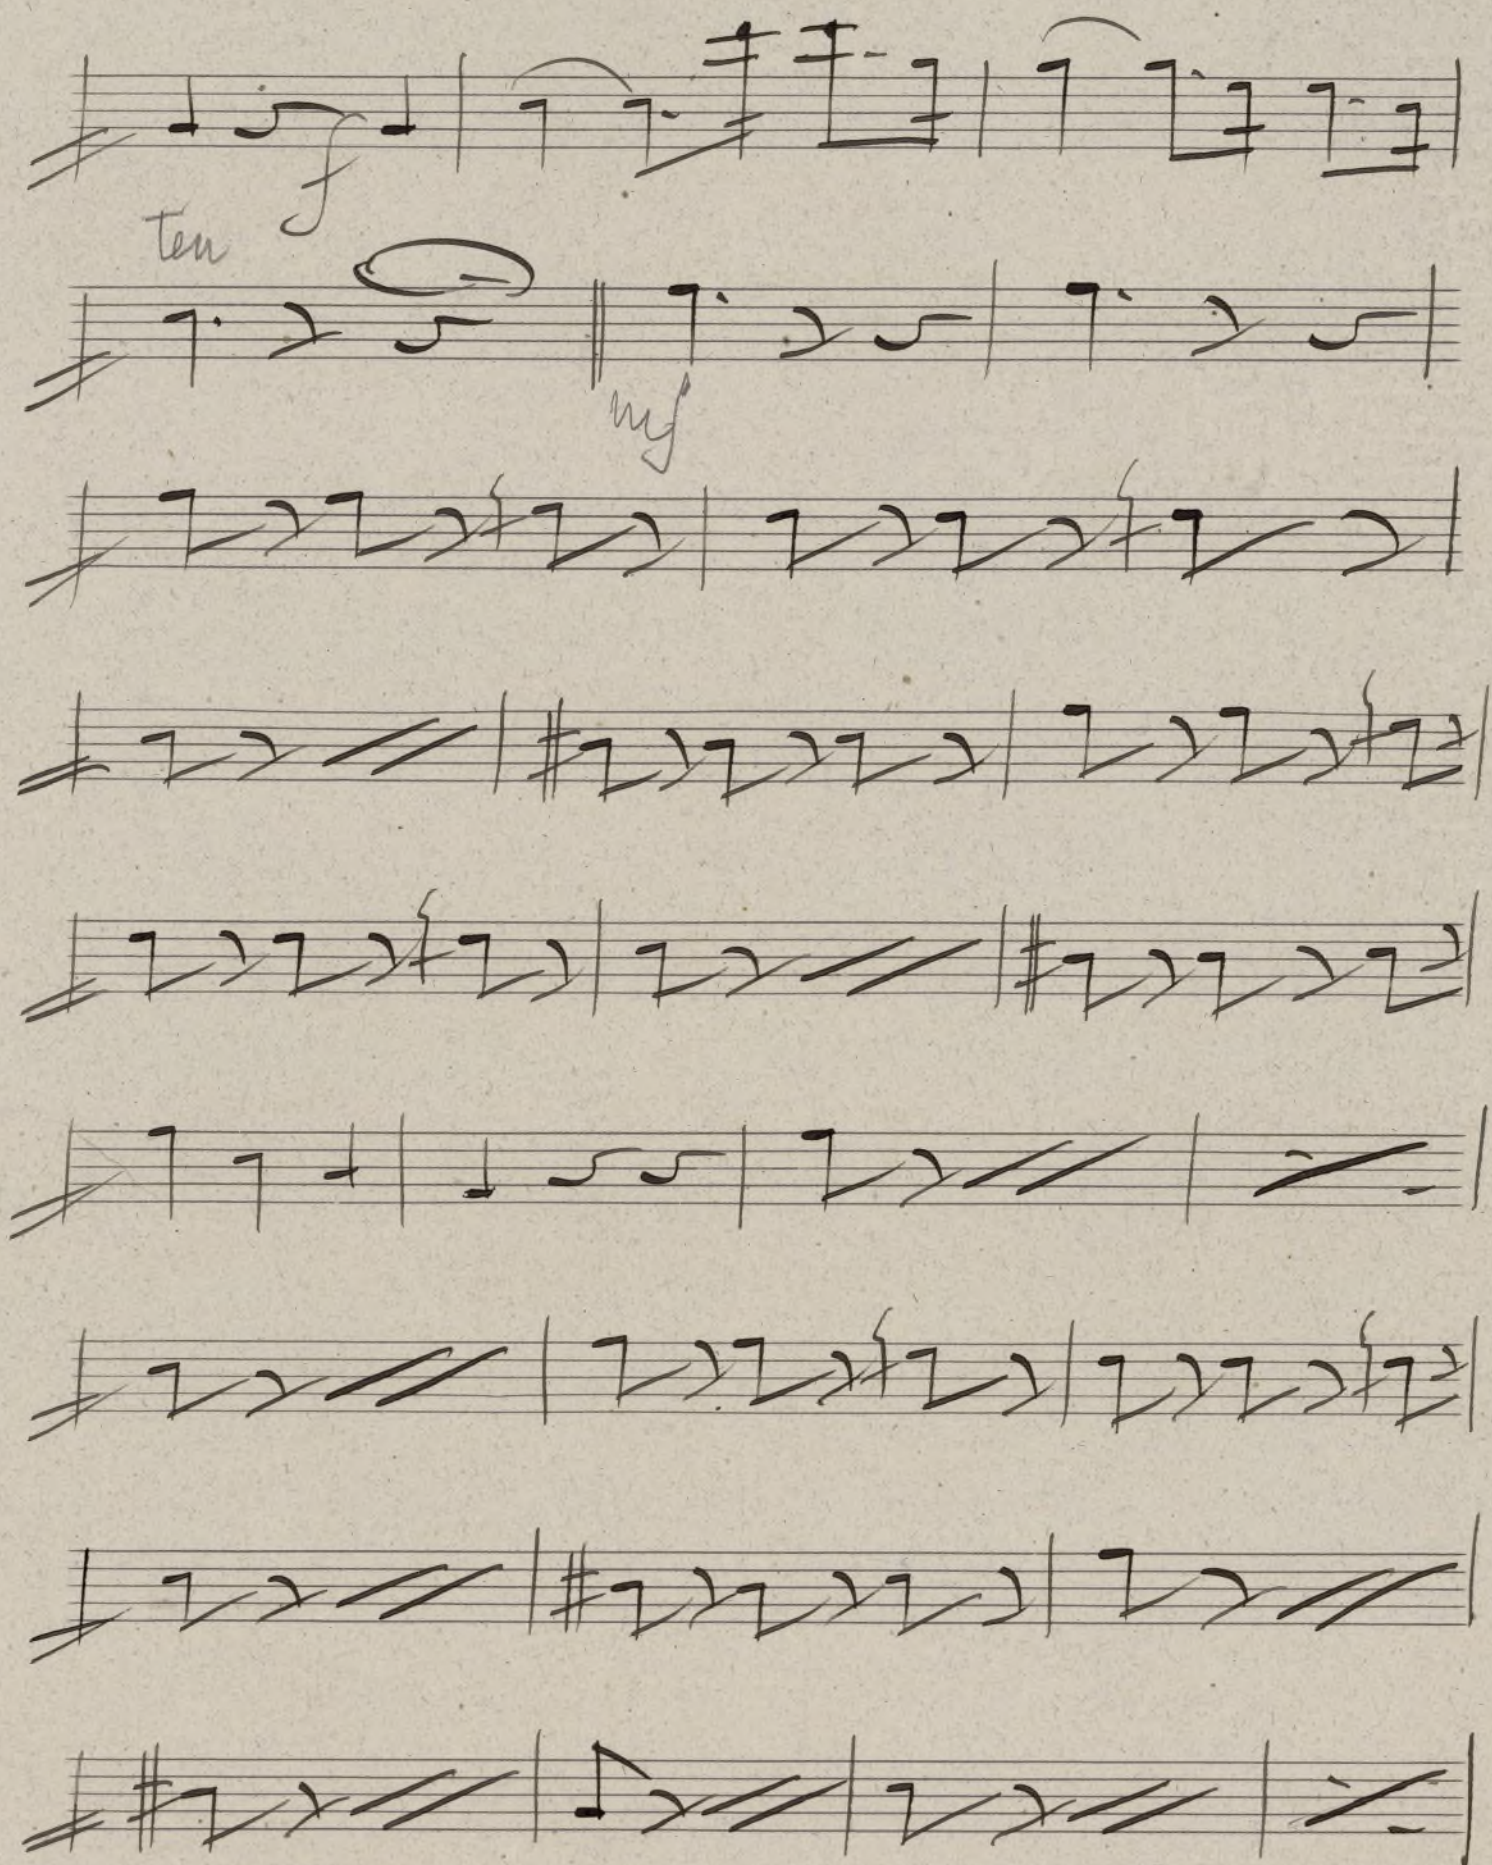 f
ten
mf